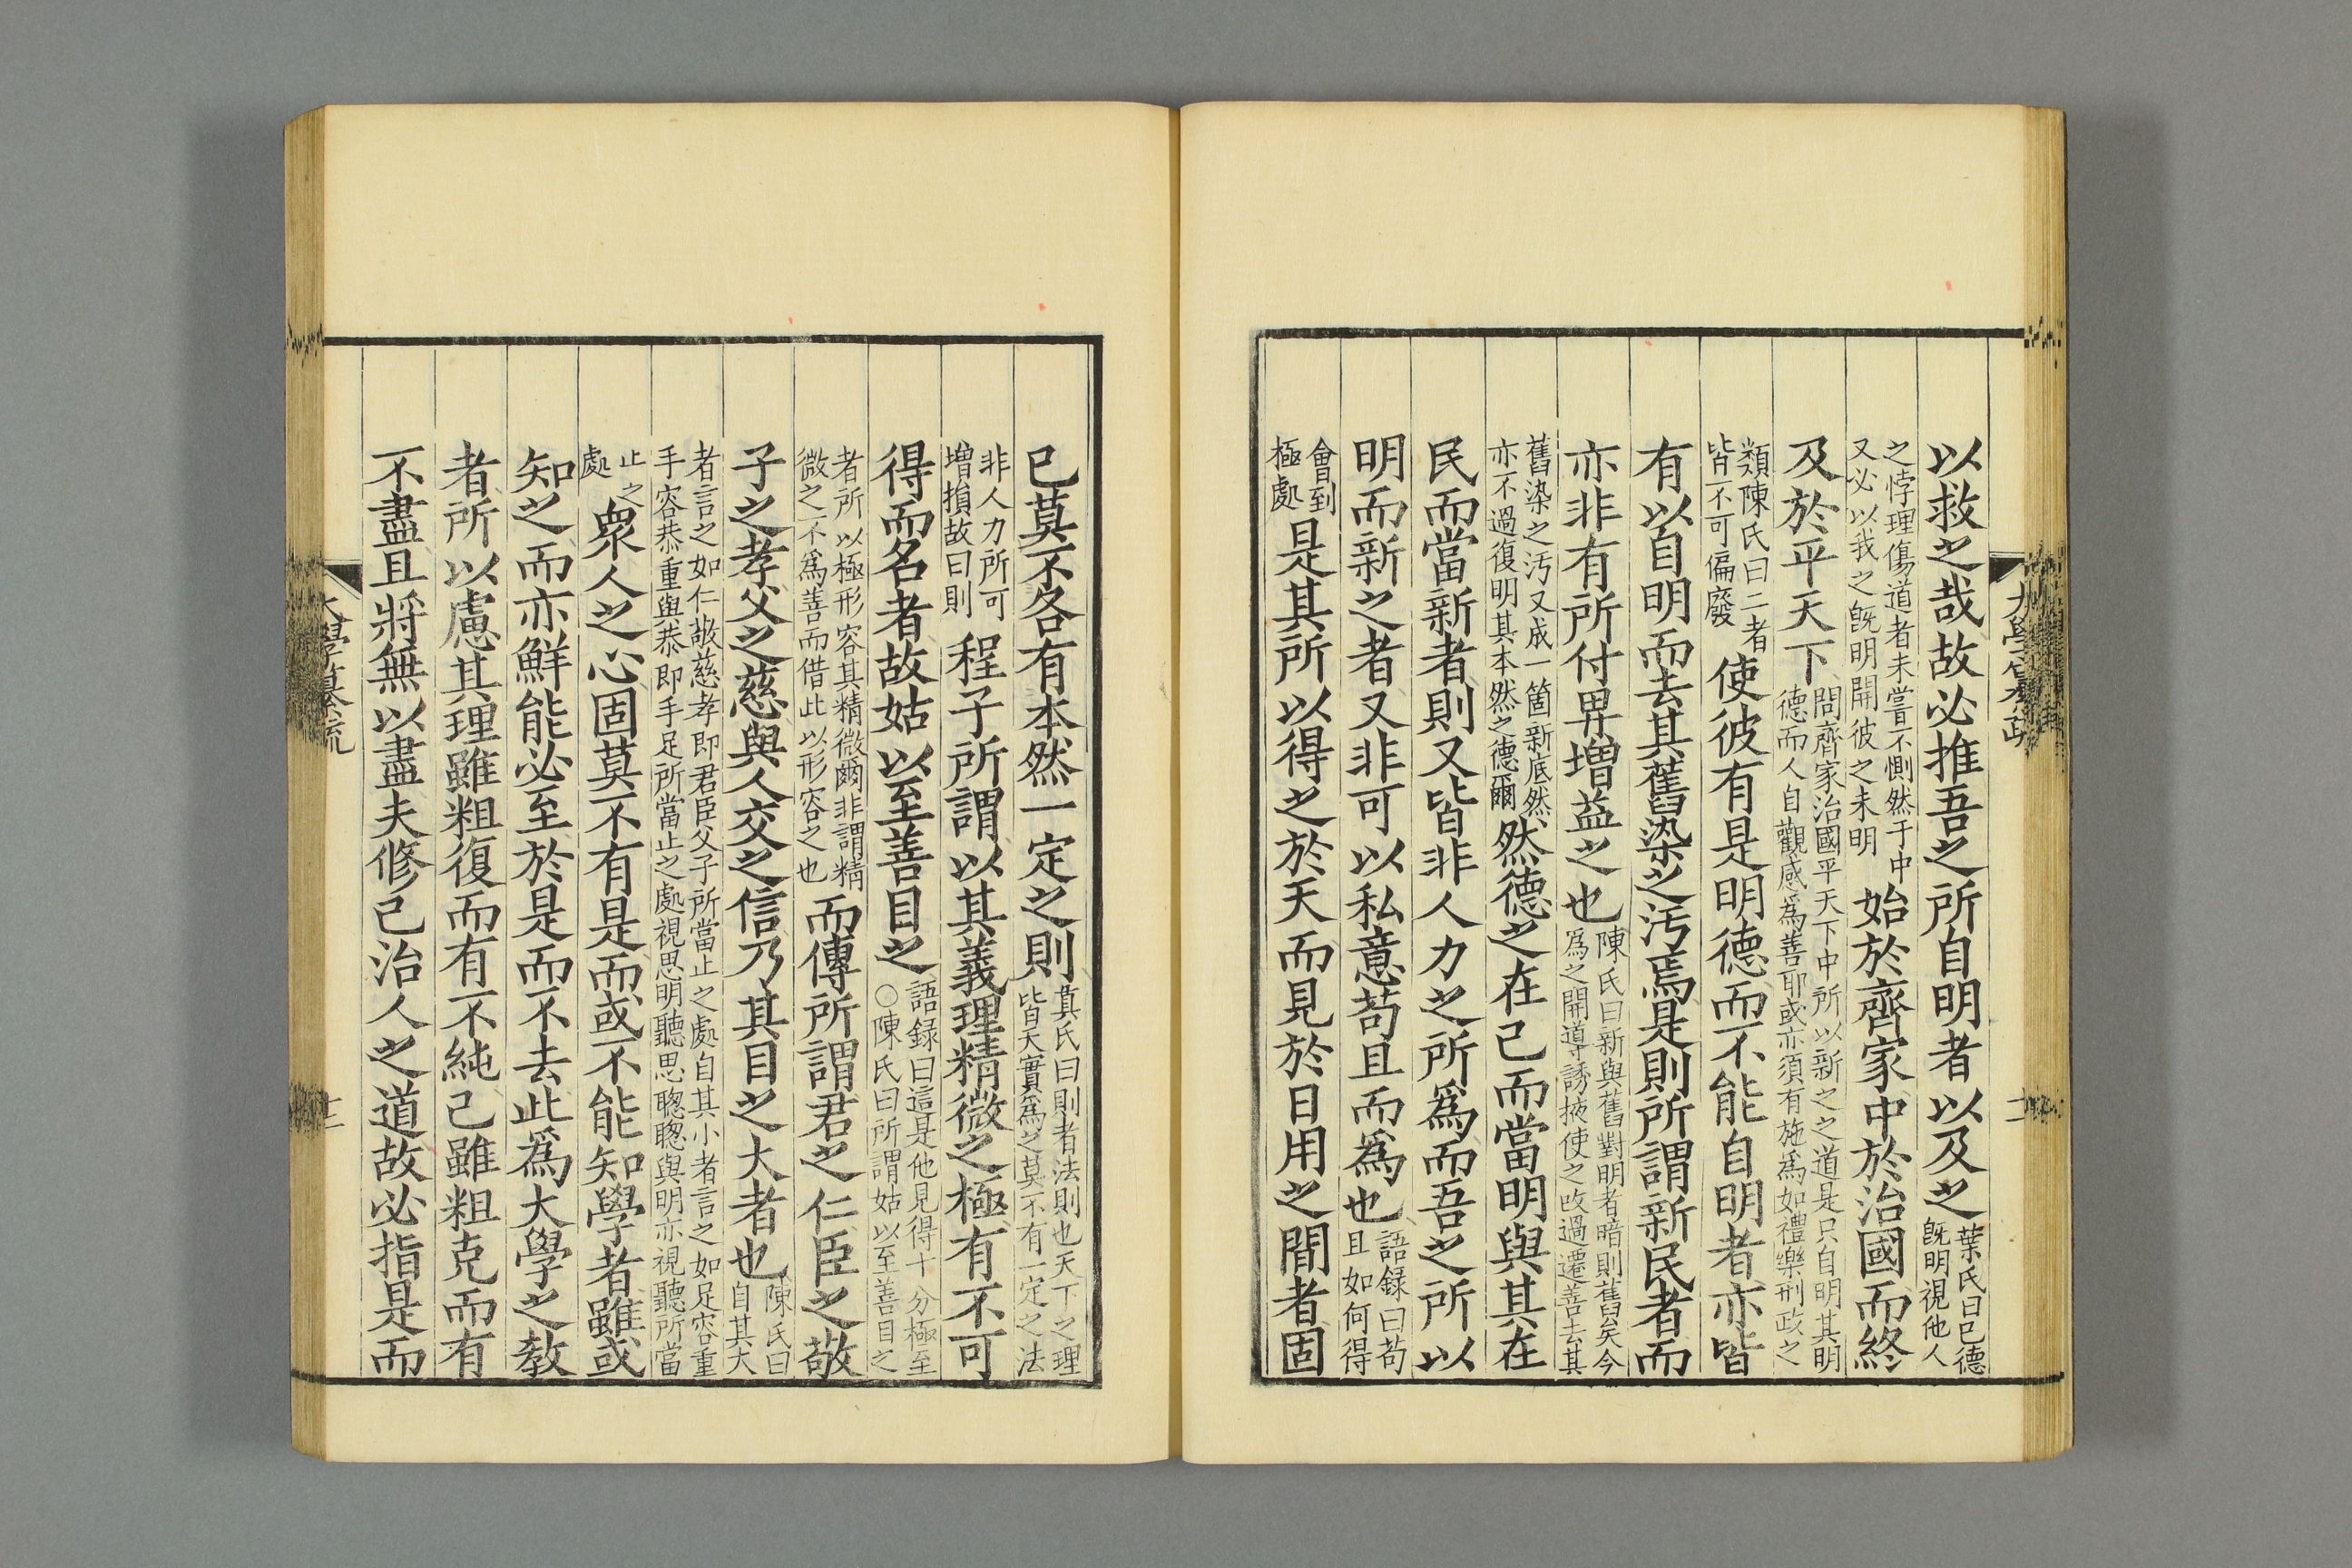 以救之哉故必推吾之所自明者以及之葉氏曰己德既明視他人
之悖理傷道者未嘗不惻然于中又必以我之既明開彼之未明始於齊家中於治國而終
及於平天下問齊家治國平天下中所以新之之道是只自明其明德而人自觀感爲善耶或亦須有施爲如禮樂刑政之
類陳氏曰二者皆不可偏廢使彼有是明德而不能自明者亦皆
有以自明而去其舊染之汚焉是則所謂新民者而
亦非有所付畀增益之也陳氏曰新與舊對明者暗則舊矣今爲之開導誘掖使之改過遷善去其
舊染之汚又成一箇新底然亦不過復明其本然之德爾然德之在己而當明與其在
民而當新者則又皆非人力之所爲而吾之所以
明而新之者又非可以私意苟且而爲也語録曰苟且如何得
會到極處是其所以得之於天而見於日用之間者固
已莫不各有本然一定之則真氏曰則者法則也天下之理皆天實爲之莫不有一定之法
非人力所可增損故曰則程子所謂以其義理精微之極有不可
得而名者故姑以至善目之語録曰這是他見得十分極至○陳氏曰所謂姑以至善目之
者所以極形容其精微爾非謂精微之不爲善而借此以形容之也而傳所謂君之仁臣之敬
子之孝父之慈與人交之信乃其目之大者也陳氏曰自其大
者言之如仁敬慈孝即君臣父子所當止之處自其小者言之如足容重手容恭重與恭即手足所當止之處視思明聽思聰聰與明亦視聽所當
止之處衆人之心固莫不有是而或不能知學者雖或
知之而亦鮮能必至於是而不去此爲大學之教
者所以慮其理雖粗復而有不純己雖粗克而有
不盡且將無以盡夫修己治人之道故必指是而